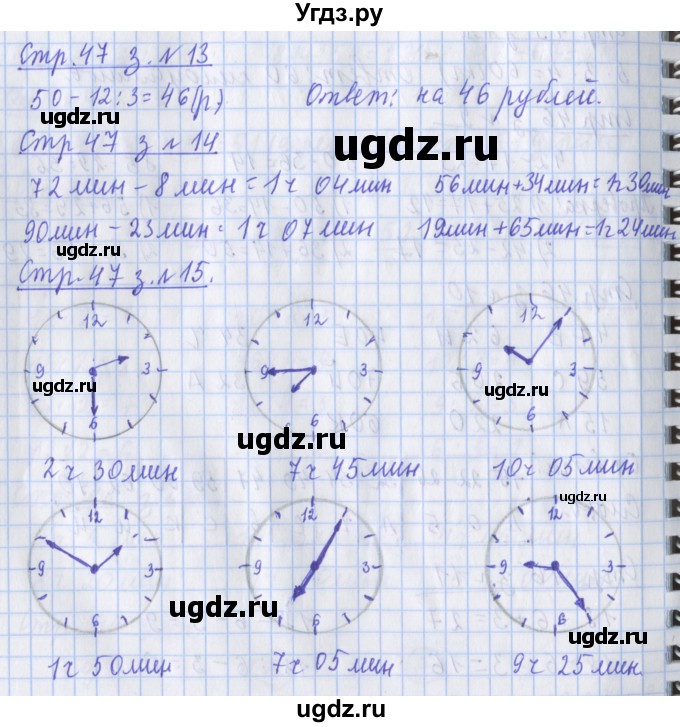 Угдз.ру
Стр. 47 з. №13
50 - 12 : 3 = 46 (р) Ответ: на 46 рублей.
ugdz.ru
ugdz.ru
Стр 47 з №14
72 мин - 8 мин = 1 ч 04 мин 56 мин + 34 мин = 1ч 30 мин
90 мин - 23 мин = 1 ч 07 мин 19 мин + 65 мин = 1ч 24 мин
ugdz.ru
Стр. 47 з. №15.
12 12 12
9 3 9 3 9 3
ugdz.ru ugdz.ru
6 6
ugdz.ru
2 ч 30 мин 7 ч 45 мин 10 ч 05 мин
ugdz.ru
12 12 12
9 3 9 3 9 3
ugdz.ru
6 6 6
ugdz.ru
1 ч 50 мин 7 ч 05 мин 9 ч 25 мин.
ugdz.ru
ugdz.ru